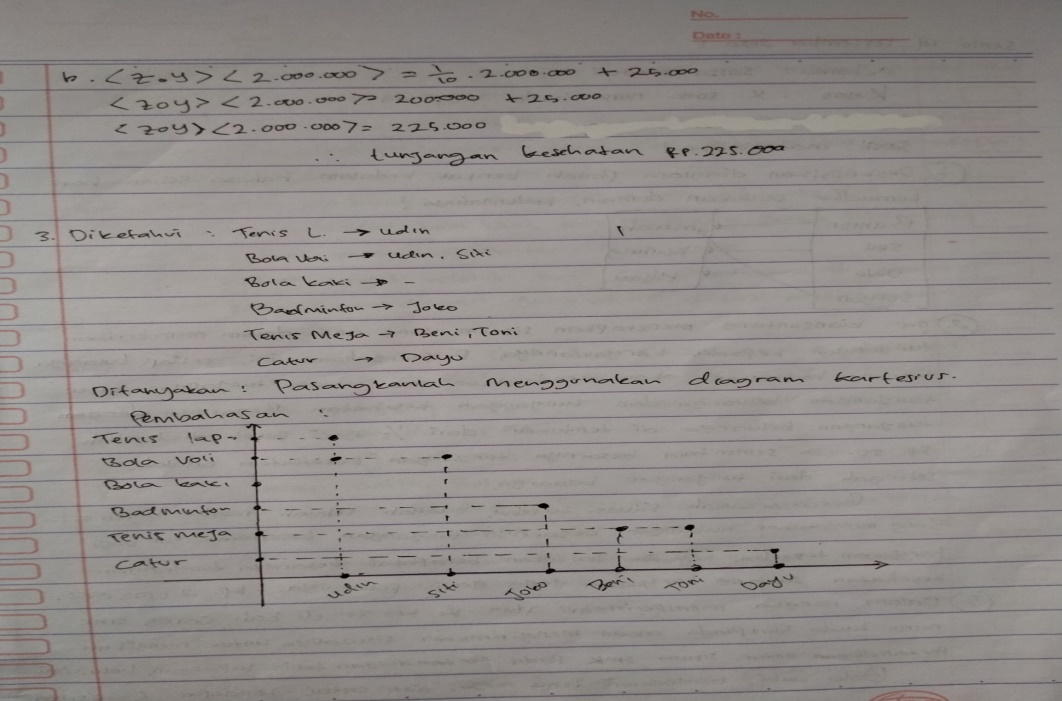 No.
Date :
b. <z.y> <2.000.000> = 1/10 . 2.000.000 + 25.000
<zoy> <2.000.000> 200.000 + 25.000
<zoy> <2.000.000> = 225.000
∴ tunjangan kesehatan Rp.225.000
3. Diketahui : Tenis L. → udin
Bola Voli → udin, Siti
Bola kaki → -
Badminton → Joko
Tenis Meja → Beni, Toni
Catur → Dayu
Ditanyakan : Pasangkanlah menggunakan diagram kartesius.
Pembahasan :
Tenis lap.
Bola voli
Bola kaki
Badminton
Tenis meja
Catur
udin siti Joko Beni Toni Dayu